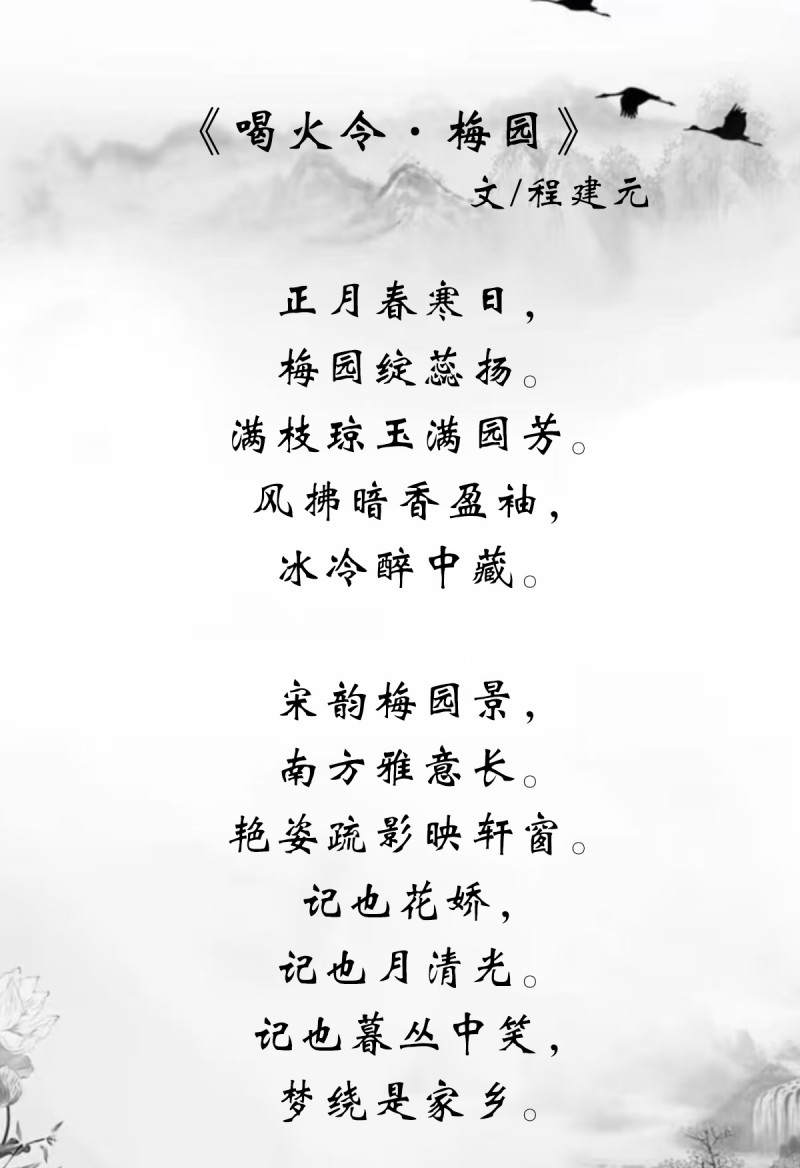 《喝火令·梅园》
文/程建元
正月春寒日，
梅园绽蕊扬。
满枝琼玉满园芳。
风拂暗香盈袖，
冰冷醉中藏。
宋韵梅园景，
南方雅意长。
艳姿疏影映轩窗。
记也花娇，
记也月清光。
记也暮丛中笑，
梦绕是家乡。